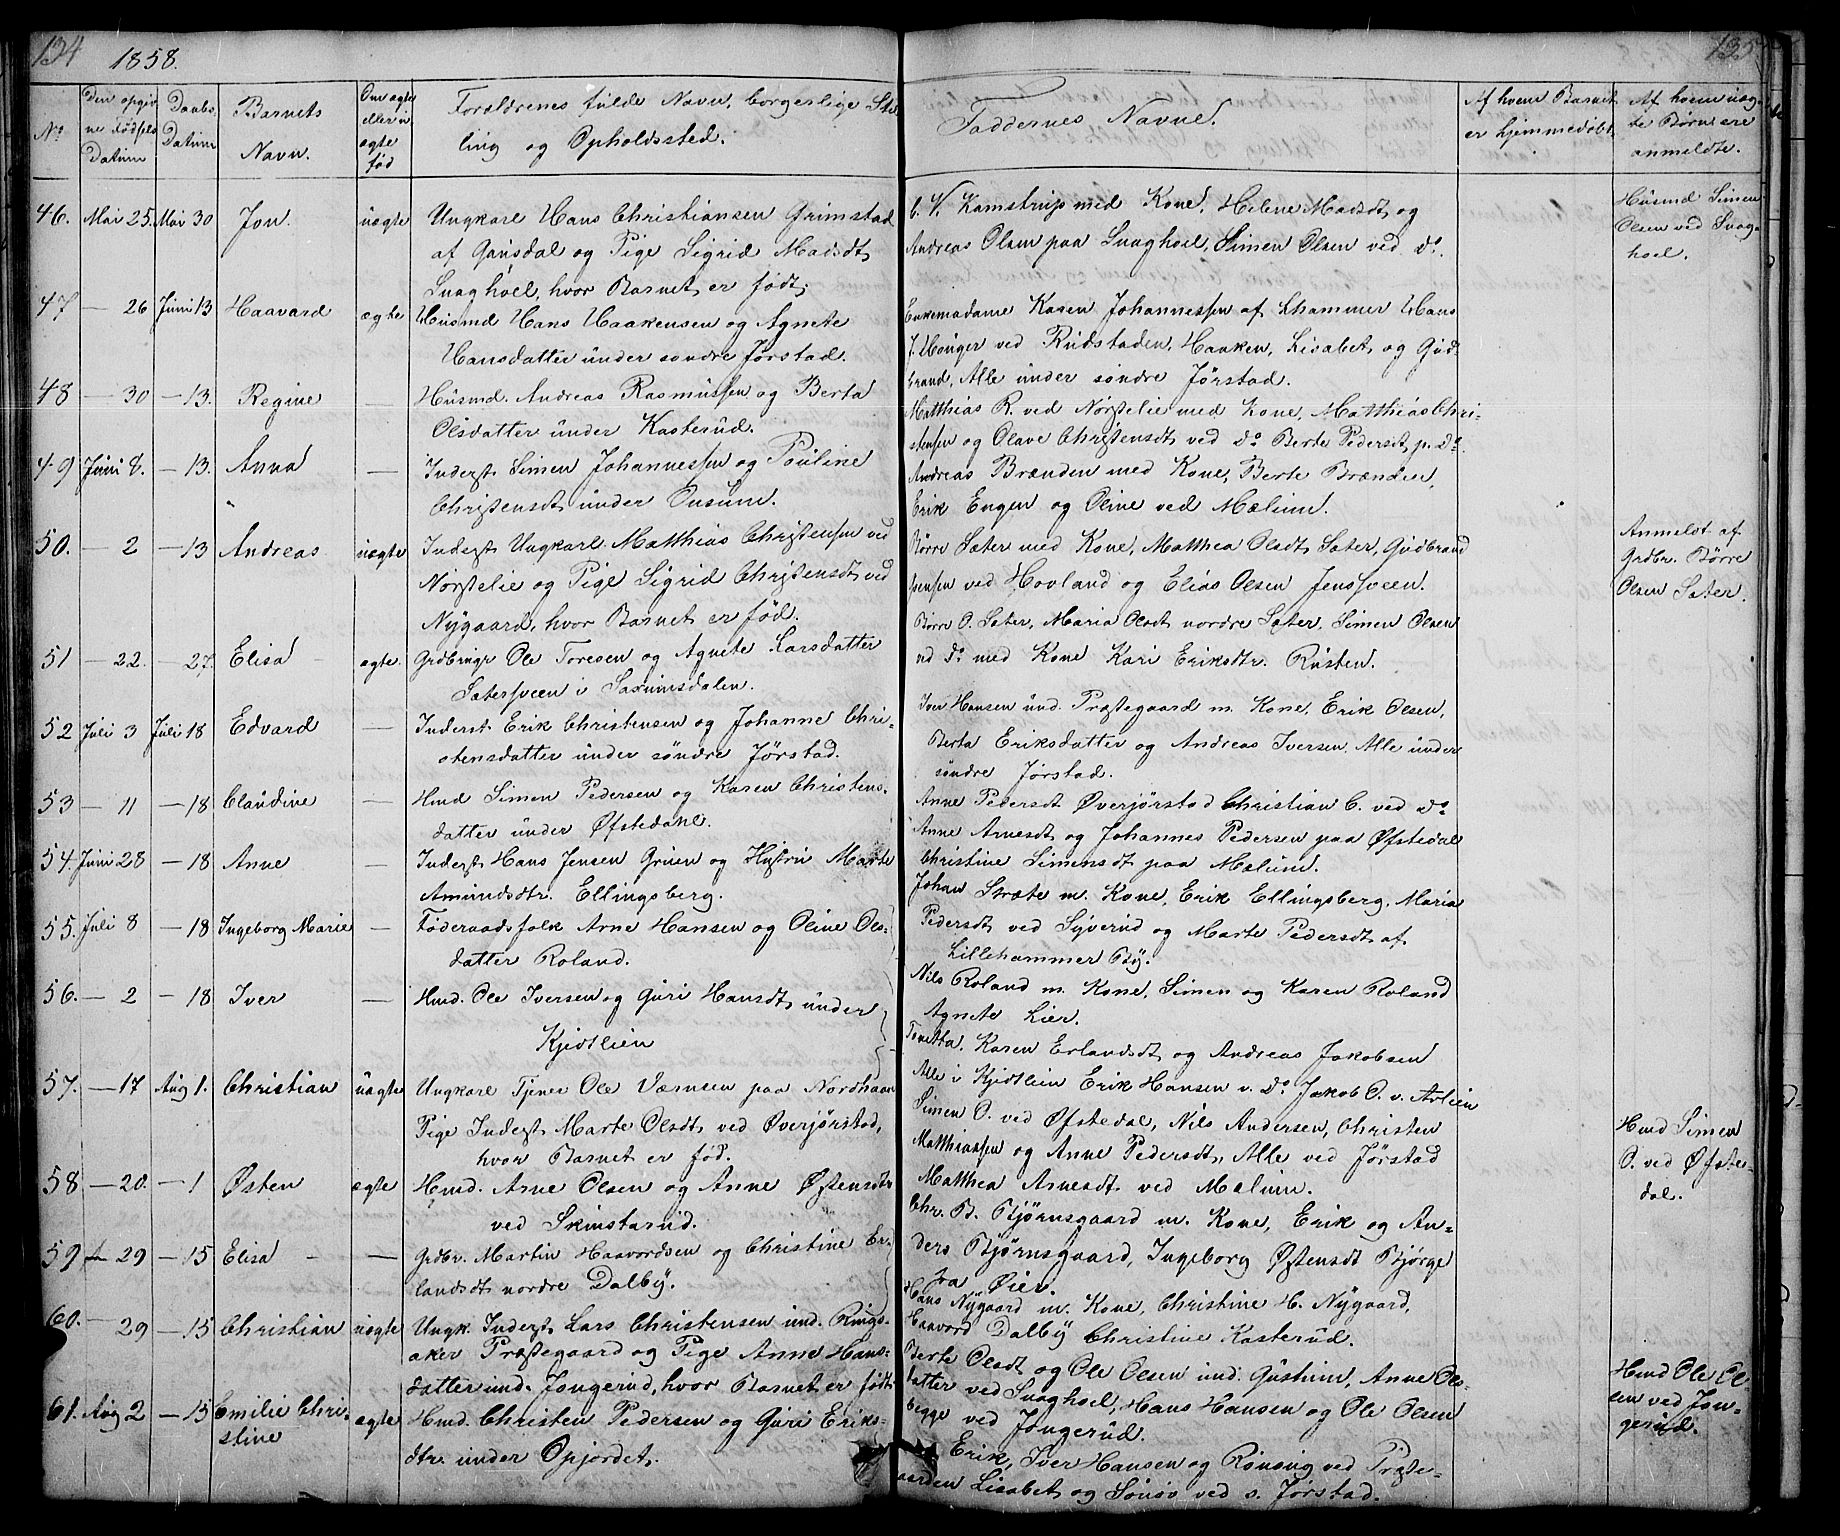 134 1858.
No.
Den opgiv
ne Fødsels
Datum
Daabs
Datum
Barnets
Navn.
Om ægte
eller u
ægte
fød
Forældrenes fulde Navn, borgerlige Stil
ling og Opholdssted.
46. Mai 25. Mai 30 Jon. uægte Ungkarl Hans Christiansen Grimstad
af Gausdal og Pige Sigrid Madsdt
Svaghoel, hvor Barnet er født.
47 — 26 Juni 13 Haavard ægte Husmd Hans Haakensen og Agnete
Hansdatter under søndre Jørstad.
48 — 30 — 13. Regine — Husmd. Andreas Rasmussen og Berta
Olsdatter under Kasterud.
49 Juni 8. — 13. Anna — Inderst Simen Johannessen og Pouline
Christensdt under Onsum.
50. — 2 — 13 Andreas uægte Inderst Ungkarl Matthias Christensen ved
Nørstelie og Pige Sigrid Christensdt ved
Nygaard, hvor Barnet er fød.
51 — 22. — 27. Elisa ægte. Grdbrugr Ole Toresen og Agnete Larsdatter
Sætersveen i Saxumsdalen.
52 Juli 3 Juli 18 Edvard — Inderst Erik Christensen og Johanne Chri-
stensdatter under søndre Jørstad.
53 — 11 — 18 Claudine — Hmd Simen Pedersen og Karen Christens-
datter under Øfstedahl.
54. Juni 28 — 18 Anne — Inderst Hans Jensen Gruen og Hustru Marte
Amundsdtr. Ellingsberg.
55. Juli 8 — 18 Ingeborg Marie — Føderaadsfolk Arne Hansen og Oline Ols-
datter Roland.
56. — 2 — 18 Iver — Hmd. Ole Iversen og Guri Hansdt under
Kjidtlien
57. — 17 Aug 1. Christian uægte Ungkarl Tjener Ole Værnsen paa Nordhaan
Pige Inderst Marte Olsdt ved Overjørstad,
hvor Barnet er fød.
58 — 20. — 1 Østen ægte Hmd. Arne Olsen og Anne Østensdt
ved Skinstarud.
59 — 29 — 15 Elisa — Grdbr. Martin Haavordsen og Christine Er-
landsdt nordre Dalby.
60. — 29 — 15 Christian uægte Ungk. Inderst Lars Christensen und. Rings-
aker Præstegaard og Pige Anne Hans-
datter und. Jongerud, hvor Barnet er født
61. Aug 2 — 15 Emilie Chri-
stine ægte Hmd. Christen Pedersen og Guri Eriks-
dtr. under Opjordet.
135
Faddernes Navne.
Af hvem Barnet
er hjemmedøbt.
Af hvem uæg-
te Børn ere
anmeldte.
Kamstrup med Kone, Helene Madsdt og
Andreas Olsen paa Svaghoel, Simen Olsen ved do.
Enkemadame Karen Johannessen af Lhammer Hans
ved Rudstaden, Haaken, Lisabet og Gud-
brand, Alle under søndre Jørstad.
Matthias R. ved Nørstelie med Kone, Matthias Chri-
stensen og Olave Christensdt ved do Berte Pedersdt p. do.
Andreas Brænden med Kone, Berte Brænden,
Erik Engen og Oline ved Mælum.
Børre Sæter med Kone, Matthea Olsdt Sæter, Gudbrand
ved Hovland og Elias Olsen Jenssveen.
Børre O. Sæter, Maria Olsdt nordre Sæter, Simen Olsen
ved do med Kone Kari Eriksdtr. Rusten.
Iver Hansen und. Præstegaard m. Kone, Erik Olsen,
Berta Eriksdatter og Andreas Iversen, Alle under
søndre Jørstad.
Anne Pedersdt Overjørstad Christian C. ved do
Anne Arnesdt og Johannes Pedersen paa Øfstedal
Christine Simensdt paa Mælum.
Johan Stræte m. Kone, Erik Ellingsberg, Maria
Pedersdt ved Syverud og Marte Pedersdt af
Lillehammer By.
Nils Roland m. Kone, Simen og Karen Roland
Agnete Lier.
Karen Erlandsdt og Andreas Jakobsen
Alle i Kjidtlien Erik Hansen v. do, Jakob O. v. Aulien
Simen O. ved Øfstedal, Nils Andersen, Christen
Matthiassen og Anne Pedersdt, Alle ved Jørstad
Matthea Arnesdt ved Mælum.
Chr. B. Bjørnsgaard m. Kone, Erik og An-
ders Bjørnsgaard, Ingeborg Østensdt Bjørge
fra Øier.
Hans Nygaard m. Kone, Christine H. Nygaard,
Haavord Dalby Christine Kasterud.
Berte Olsdt og Ole Olsen und. Gushim, Anne Ols-
datter ved Svaghoel, Hans Hansen og Ole Olsen
begge ved Jongerud.
Erik, Iver Hansen og Rønnug ved Præste-
gaarden Lisabet og Sønov ved s. Jørstad.
Husmd Simen
Olsen ved Svag-
hoel.
Anmeldt af
Grdbr. Børre
Olsen Sæter.
Hmd Simen
O. ved Øfste-
dal.
Hmd Ole Ol-
sen ved Jon-
gerud.